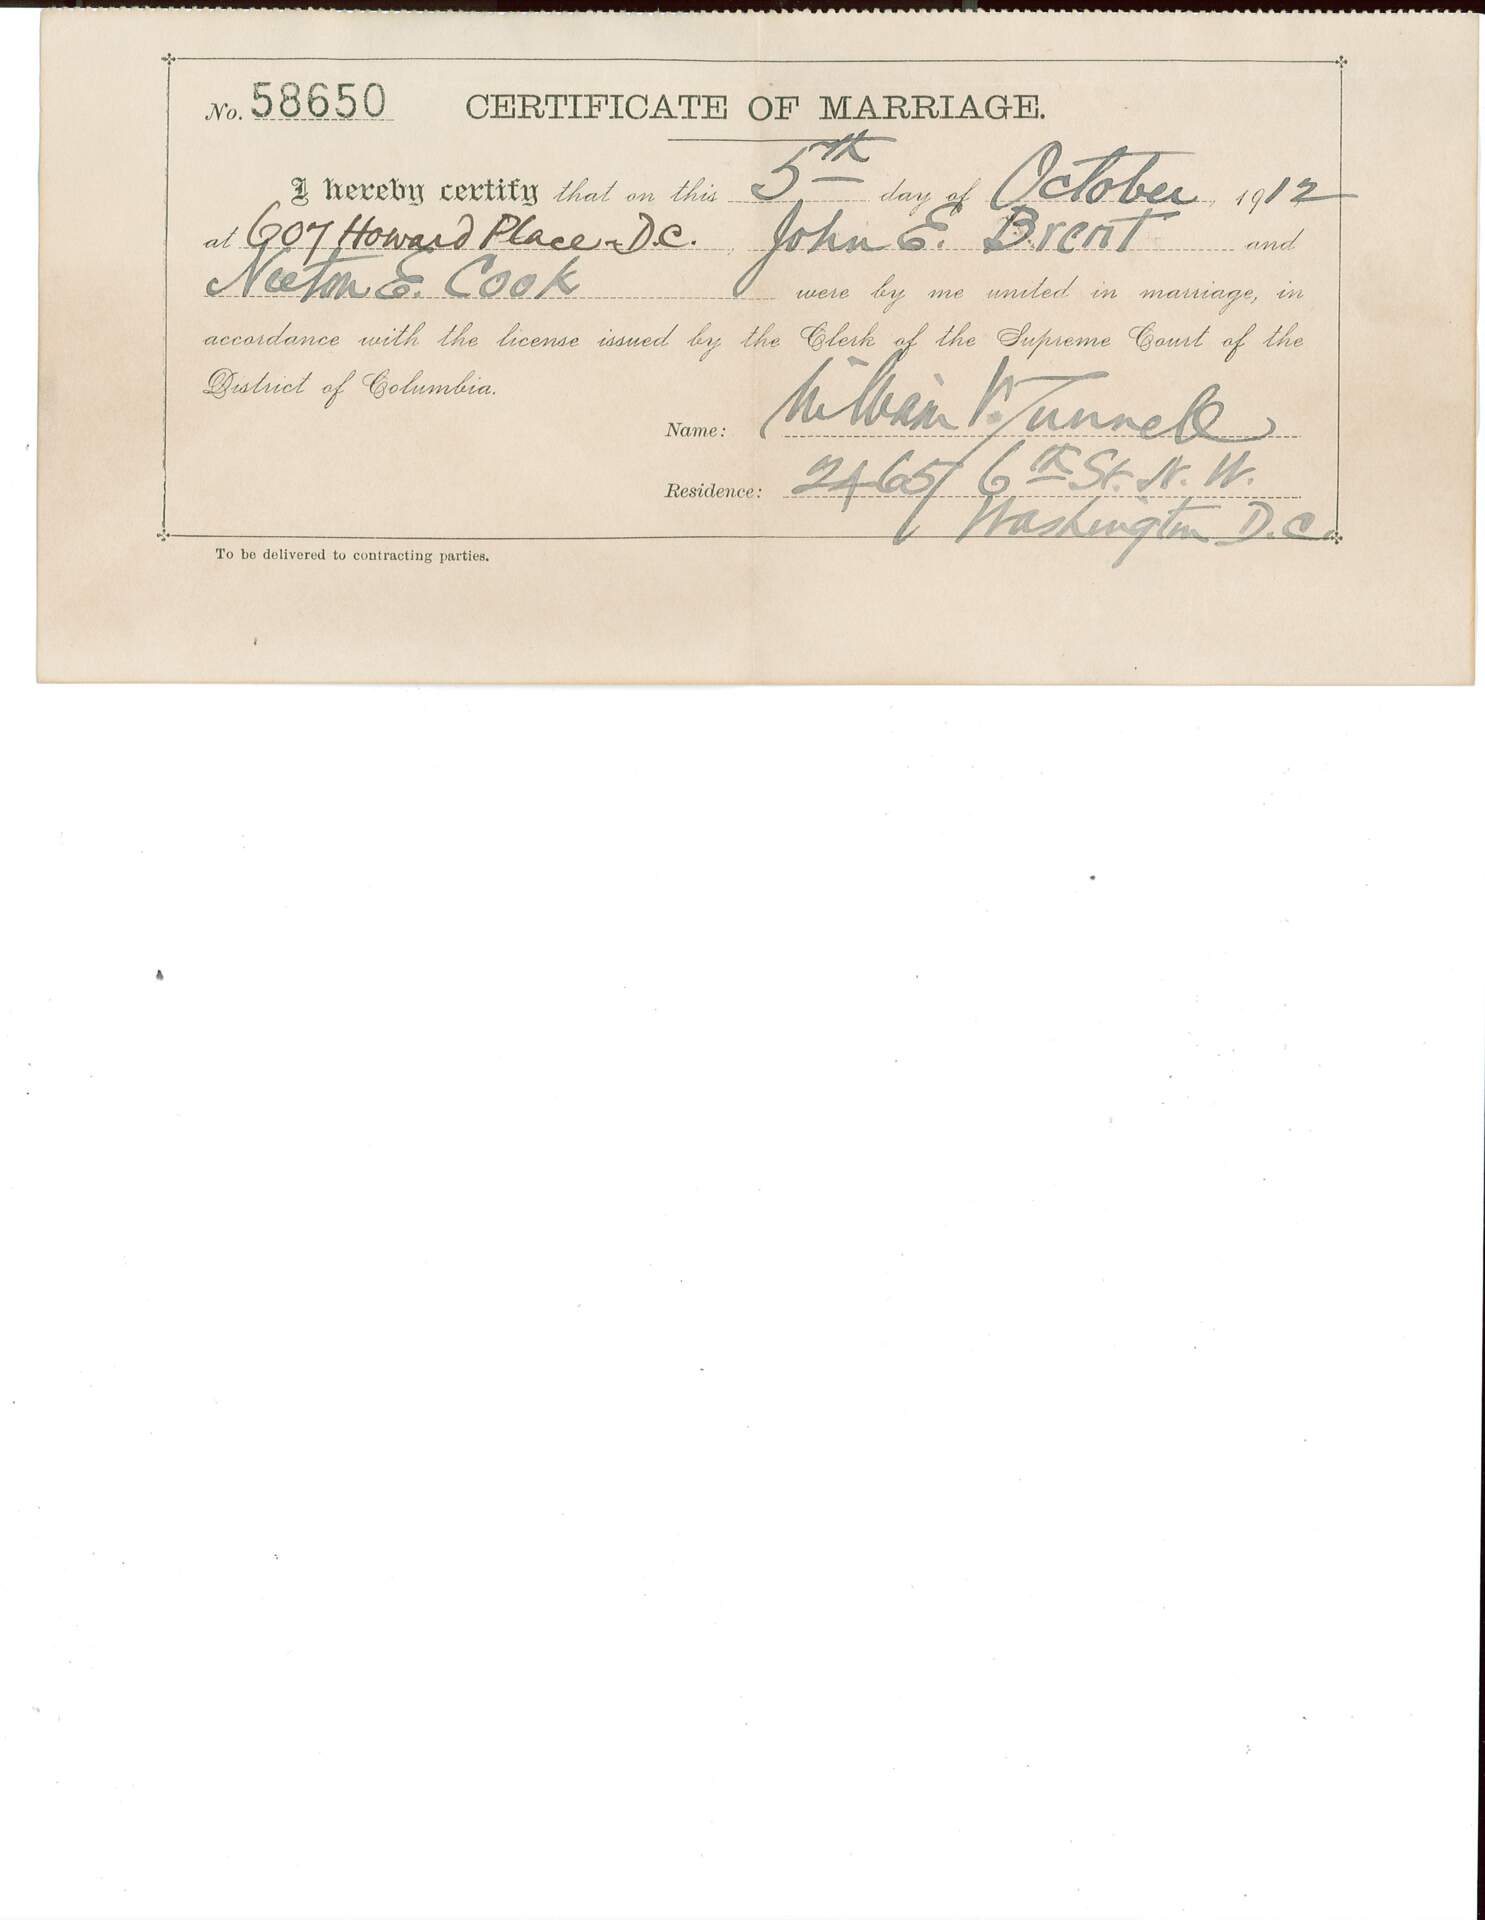 No. 58650 CERTIFICATE OF MARRIAGE.
I hereby certify that on this 5th day of October, 1912
at 607 Howard Place - D.C., John E. Brent and
Neeton E. Cook were by me united in marriage, in
accordance with the license issued by the Clerk of the Supreme Court of the
District of Columbia.
Name: William V. Tunnell
Residence: 2465 6th St. N. W.
Washington D.C.
To be delivered to contracting parties.